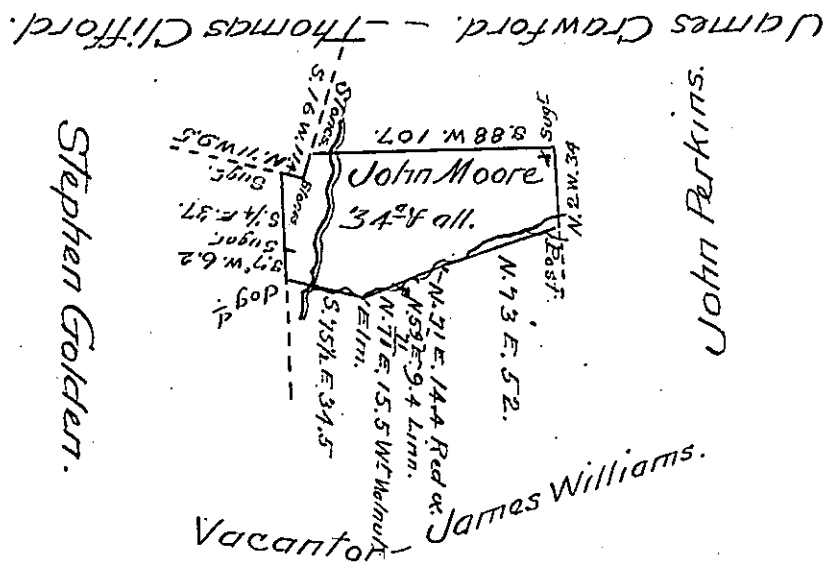 James Crawford. - Thomas Clifford.
John Perkins.
Stephen Golden.
John Moore
34 all.
S.88 W. 107.
Sugr
N.2 W. 34
Post.
N. 73 E. 52.
N. 71 E. 14.4 Red o.
N. 59 E. 9.4 Linn.
N. 71 E. 15.5 Wt Walnut
Elm.
S. 75½ E. 34.5
dogd.
S. 7° W. 6.2
Sugar
S. ¼ E. 37.
Sugr.
N. 71 W 9.5
Stones
S. 16 W. 11.4
Stones
Vacant or - James Williams.